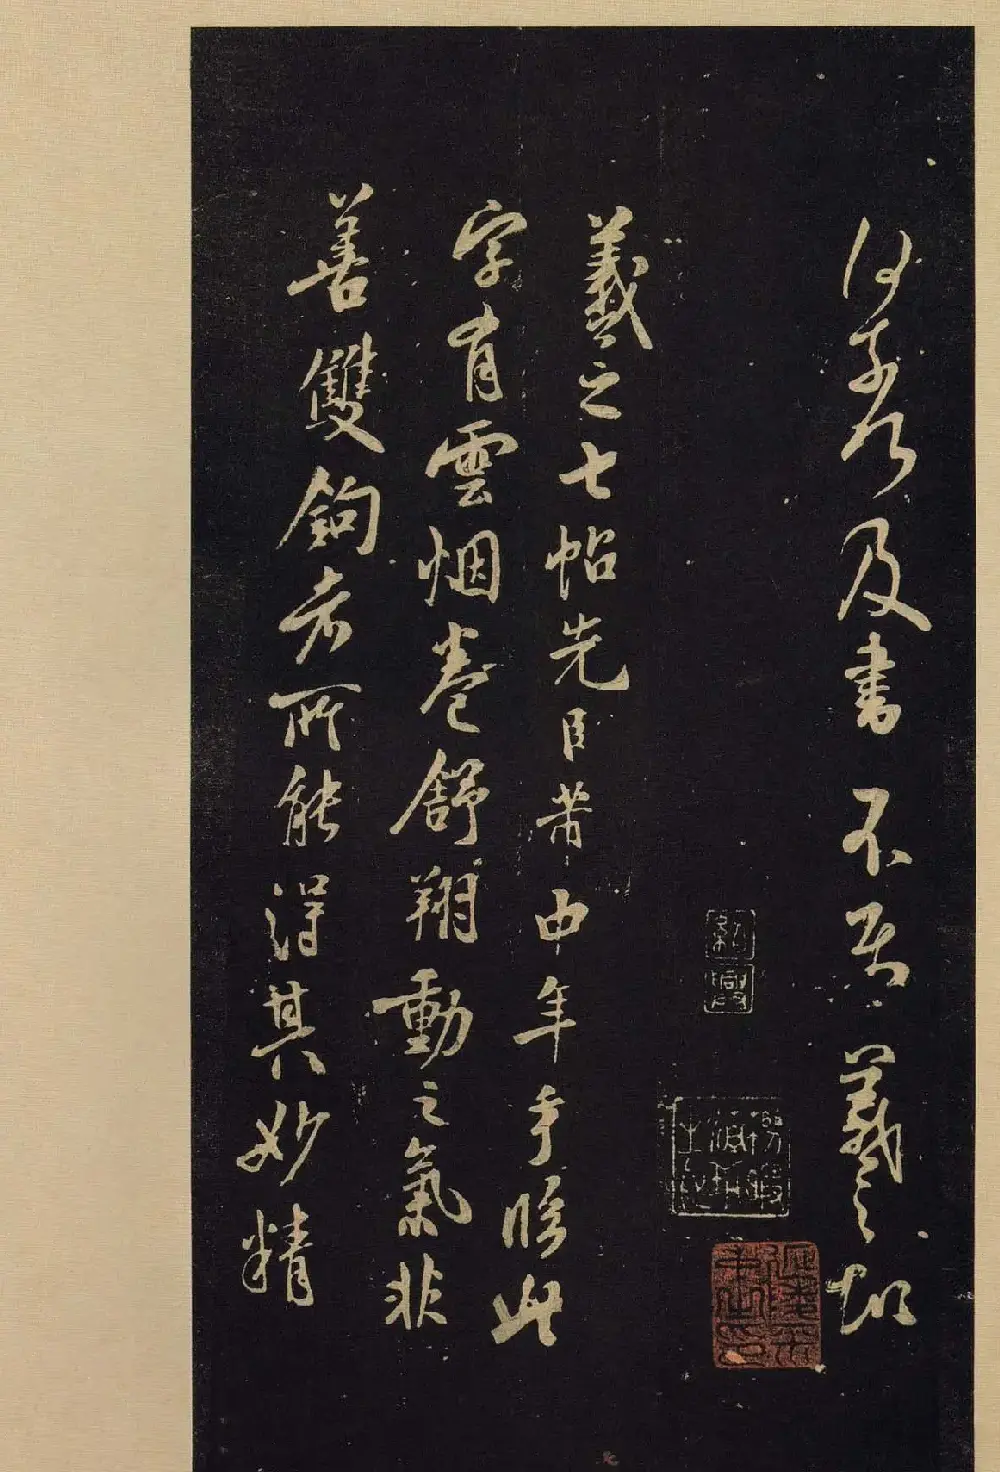 及書不 羲之
紹興
羲之七帖先臣芾中年手臨此
字有雲烟卷舒翔動之氣非
善雙鉤者所能得其妙精